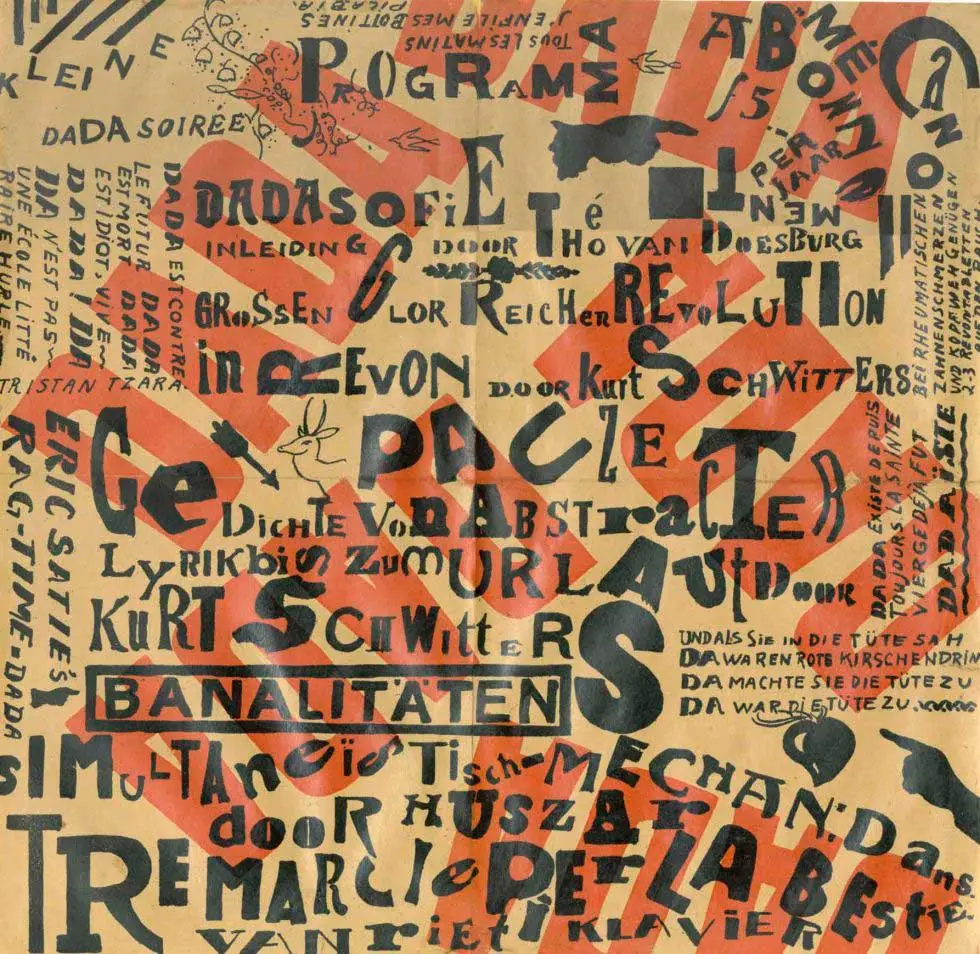 KLEINE
DADA SOIRÉE
TOUS LES MATINS
J'ENFILE MES BOTTINES
PICABIA.
PROGRAMMA
ABONNÉ-
MEN T
f5
PER
JAAR
CANO
DADASOFIE Té
INLEIDING DOOR THO VAN DOESBURG
GROSSEN GLORREICHEN REVOLUTION
in REVON DOOR Kurt SCHWITTERS
GePAUZE
DICHTE VON ABSTRACTER
LyRIK bis ZUM URLAUt DOOR
KURT SCHWittERS
BANALITÄTEN
SIMULTANEïStiSch-MECHAN: Dans
dooR HUSZAR
TRE MARCIe PER LA BEStie
VAN RiEti KLAVIER
DADA EST CONTRE
LE FUTUR. DADA
EST MORT. DADA
EST IDIOT. VIVE
DADA! DADA
N'EST PAS
UNE ÉCOLE LITTÉ
RAIRE HURLE
TRISTAN TZARA.
ERIC SATIE'S
RAG-TIME-DADA
BEI RHEUMATISCHEN
ZAHNENSCHMERZEN
UND KOPFWEH GENÜGEN
DADA EXISTE DEPUIS
TOUJOURS LA SAINTE
VIERGE DÉJÀ FUT
DADAÏSTE
UND ALS SIE IN DIE TÜTE SAH
DA WAREN ROTE KIRSCHEN DRIN
DA MACHTE SIE DIE TÜTE ZU
DA WAR DIE TÜTE ZU